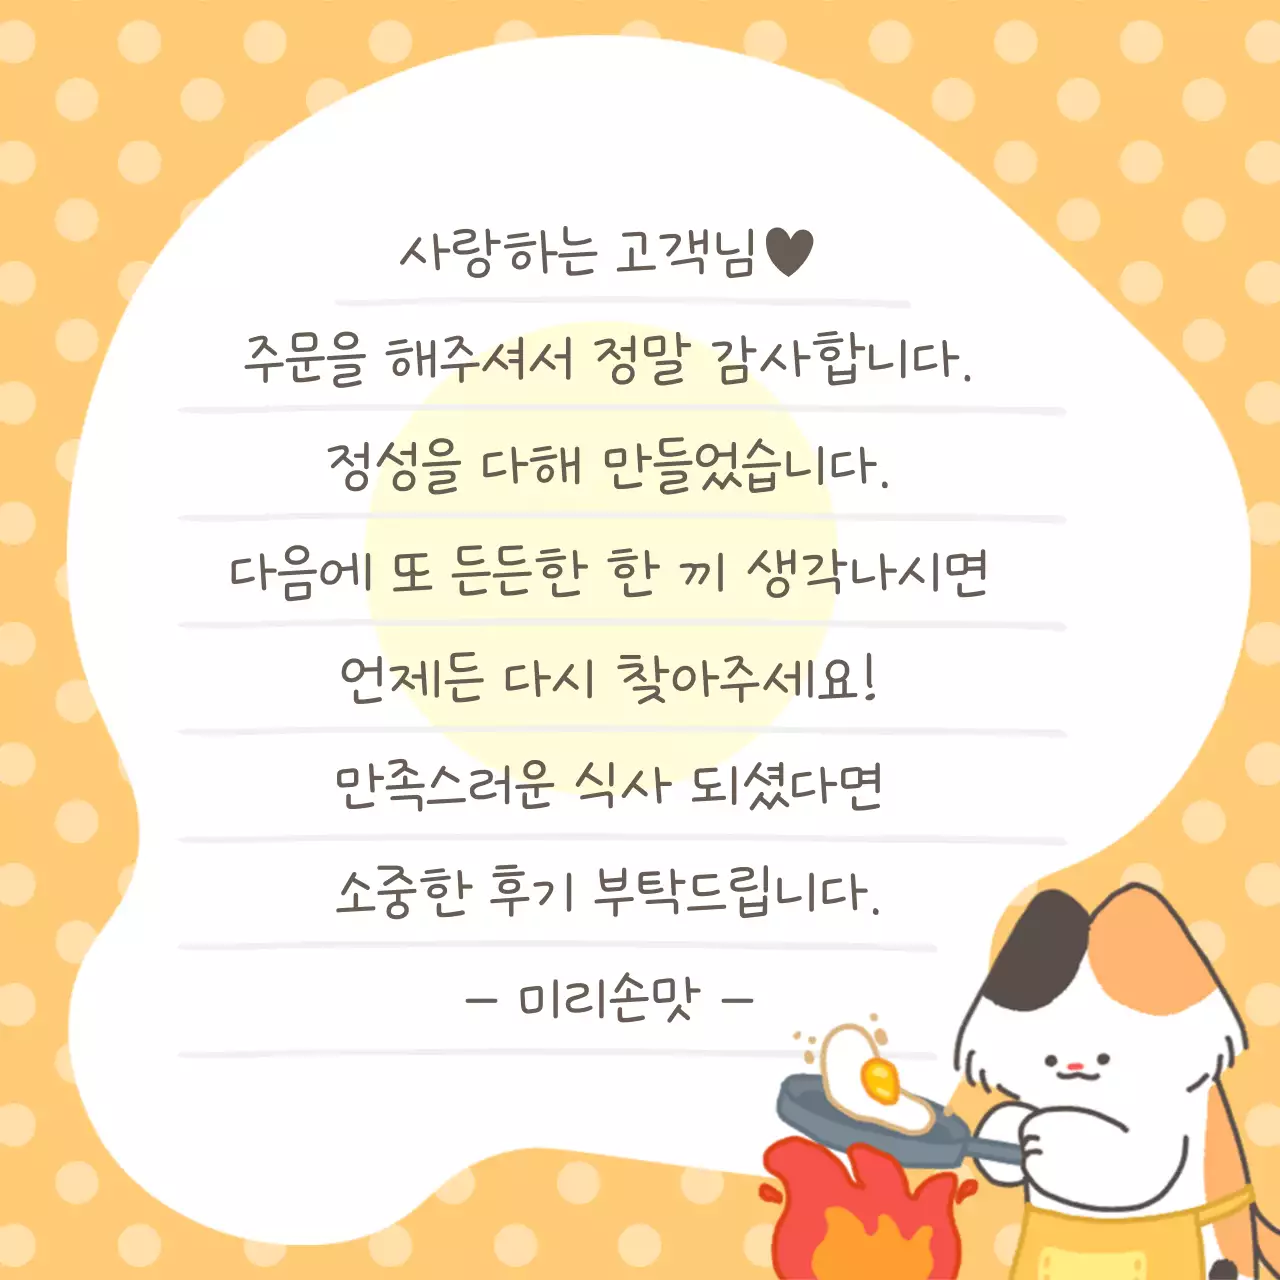 사랑하는 고객님♥
주문을 해주셔서 정말 감사합니다.
정성을 다해 만들었습니다.
다음에 또 든든한 한 끼 생각나시면
언제든 다시 찾아주세요!
만족스러운 식사 되셨다면
소중한 후기 부탁드립니다.
– 미리손맛 –